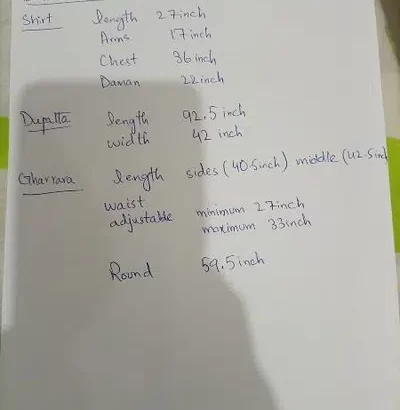 Shirt length 27inch
Arms 17inch
Chest 36inch
Daman 22inch
Dupatta length 92.5inch
width 42 inch
Gharrara length sides (40.5inch) middle (42.5inch
waist
adjustable minimum 27inch
maximum 33inch
Round 59.5inch